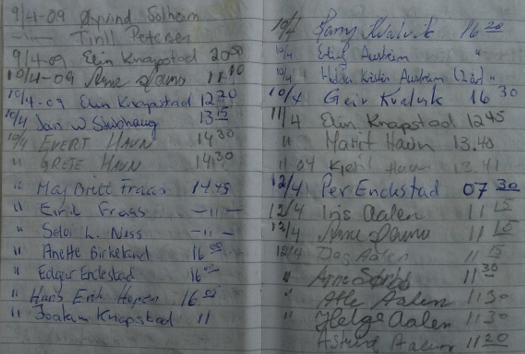 9/4-09 Øyvind Solheim
-"- Tirill Petersen
9/4-09 Elin Knapstad 20 50
10/4-09 Arne 11 10
10/4-09 Elin Knapstad 12 20
10/4 Jan W Skibhaug 13 15
10/4 EVERT HAVN 14,30
" GRETE HAVN 14,30
" Maj Britt Fraas 14.45
" Eirik Frass -"-
" Selai L. Niss -"-
" Anette Birkeland 16 00
" Edgar Endestad 16 00
" Hans Erik 16 00
" Joakim Knapstad 11
10/4 Kvalvik 16 20
10/4 Austrheim "
10/4 Kristin Austrheim "
10/4 Geir Kvalvik 16 30
11/4 Elin Knapstad 12 45
" Marit Havn 13.40
11 04 Kjetil Havn 13.41
12/4 Per Endestad 07 30
12/4 Iris Aalen 11 15
12/4 Arne 11 15
12/4 Dag Aalen 11 15
" Arne 11 30
" Atle Aalen 11 30
" Helge Aalen 11 30
Astrid Aalen 11 20